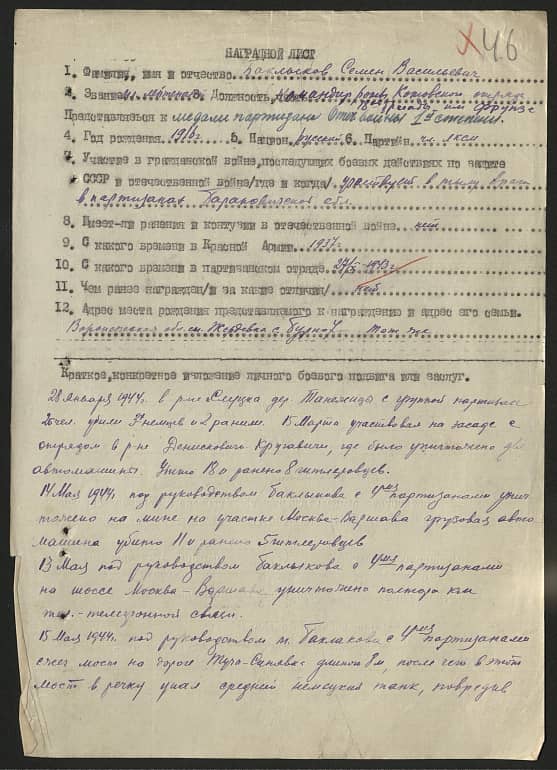 46
НАГРАДНОЙ ЛИСТ
1. Фамилия, имя и отчество Баклыков Семен Васильевич
2. Звание мл. лейтенант. Должность, часть командир роты, Котовского отряда
Представляется к медали партизана Отечвойны 1й степени
4. Год рождения 1916г. 5. Национ. русский 6. Партийн. чл. лксм
7. Участие в гражданской войне, последующих боевых действиях по защите
СССР и отечественной войне/где и когда/ участвует в тылу врага
в партизанах Барановической обл.
8. Имеет-ли ранения и контузии в отечественной войне нет
9. С какого времени в Красной Армии 1937г.
10. С какого времени в партизанском отряде 1943г.
11. Чем ранее награжден/и за какие отличия/ нет
12. Адрес места рождения представляемого к награждению и адрес его семьи.
Воронежская обл. с. тот же
Краткое, конкретное изложение личного боевого подвига или заслуг.
28 Января 1944г. в р-не дер. с группой партизан
убили 3х немцев и 2 ранили. 15 Марта участвовал на засаде с
отрядом в р-не Денисковичи-Круговичи, где было уничтожено две
автомашины. Убито 18 и ранено 8 гитлеровцев.
14 Мая 1944г. под руководством Баклыкова с 4мя партизанами унич
тожено на мине на участке Москва-Варшава грузовая авто
машина убито 11 и ранено 5 гитлеровцев
13 Мая под руководством Баклыкова с 4мя партизанами
на шоссе Москва-Варшава уничтожено полтора км
тел.-телефонной связи.
15 Мая 1944г. под руководством т. Баклакова с 4мя партизанами
сжег мост на дороге длиной 8м, после чего в этот
мост в речку упал средний немецкий танк, повредив